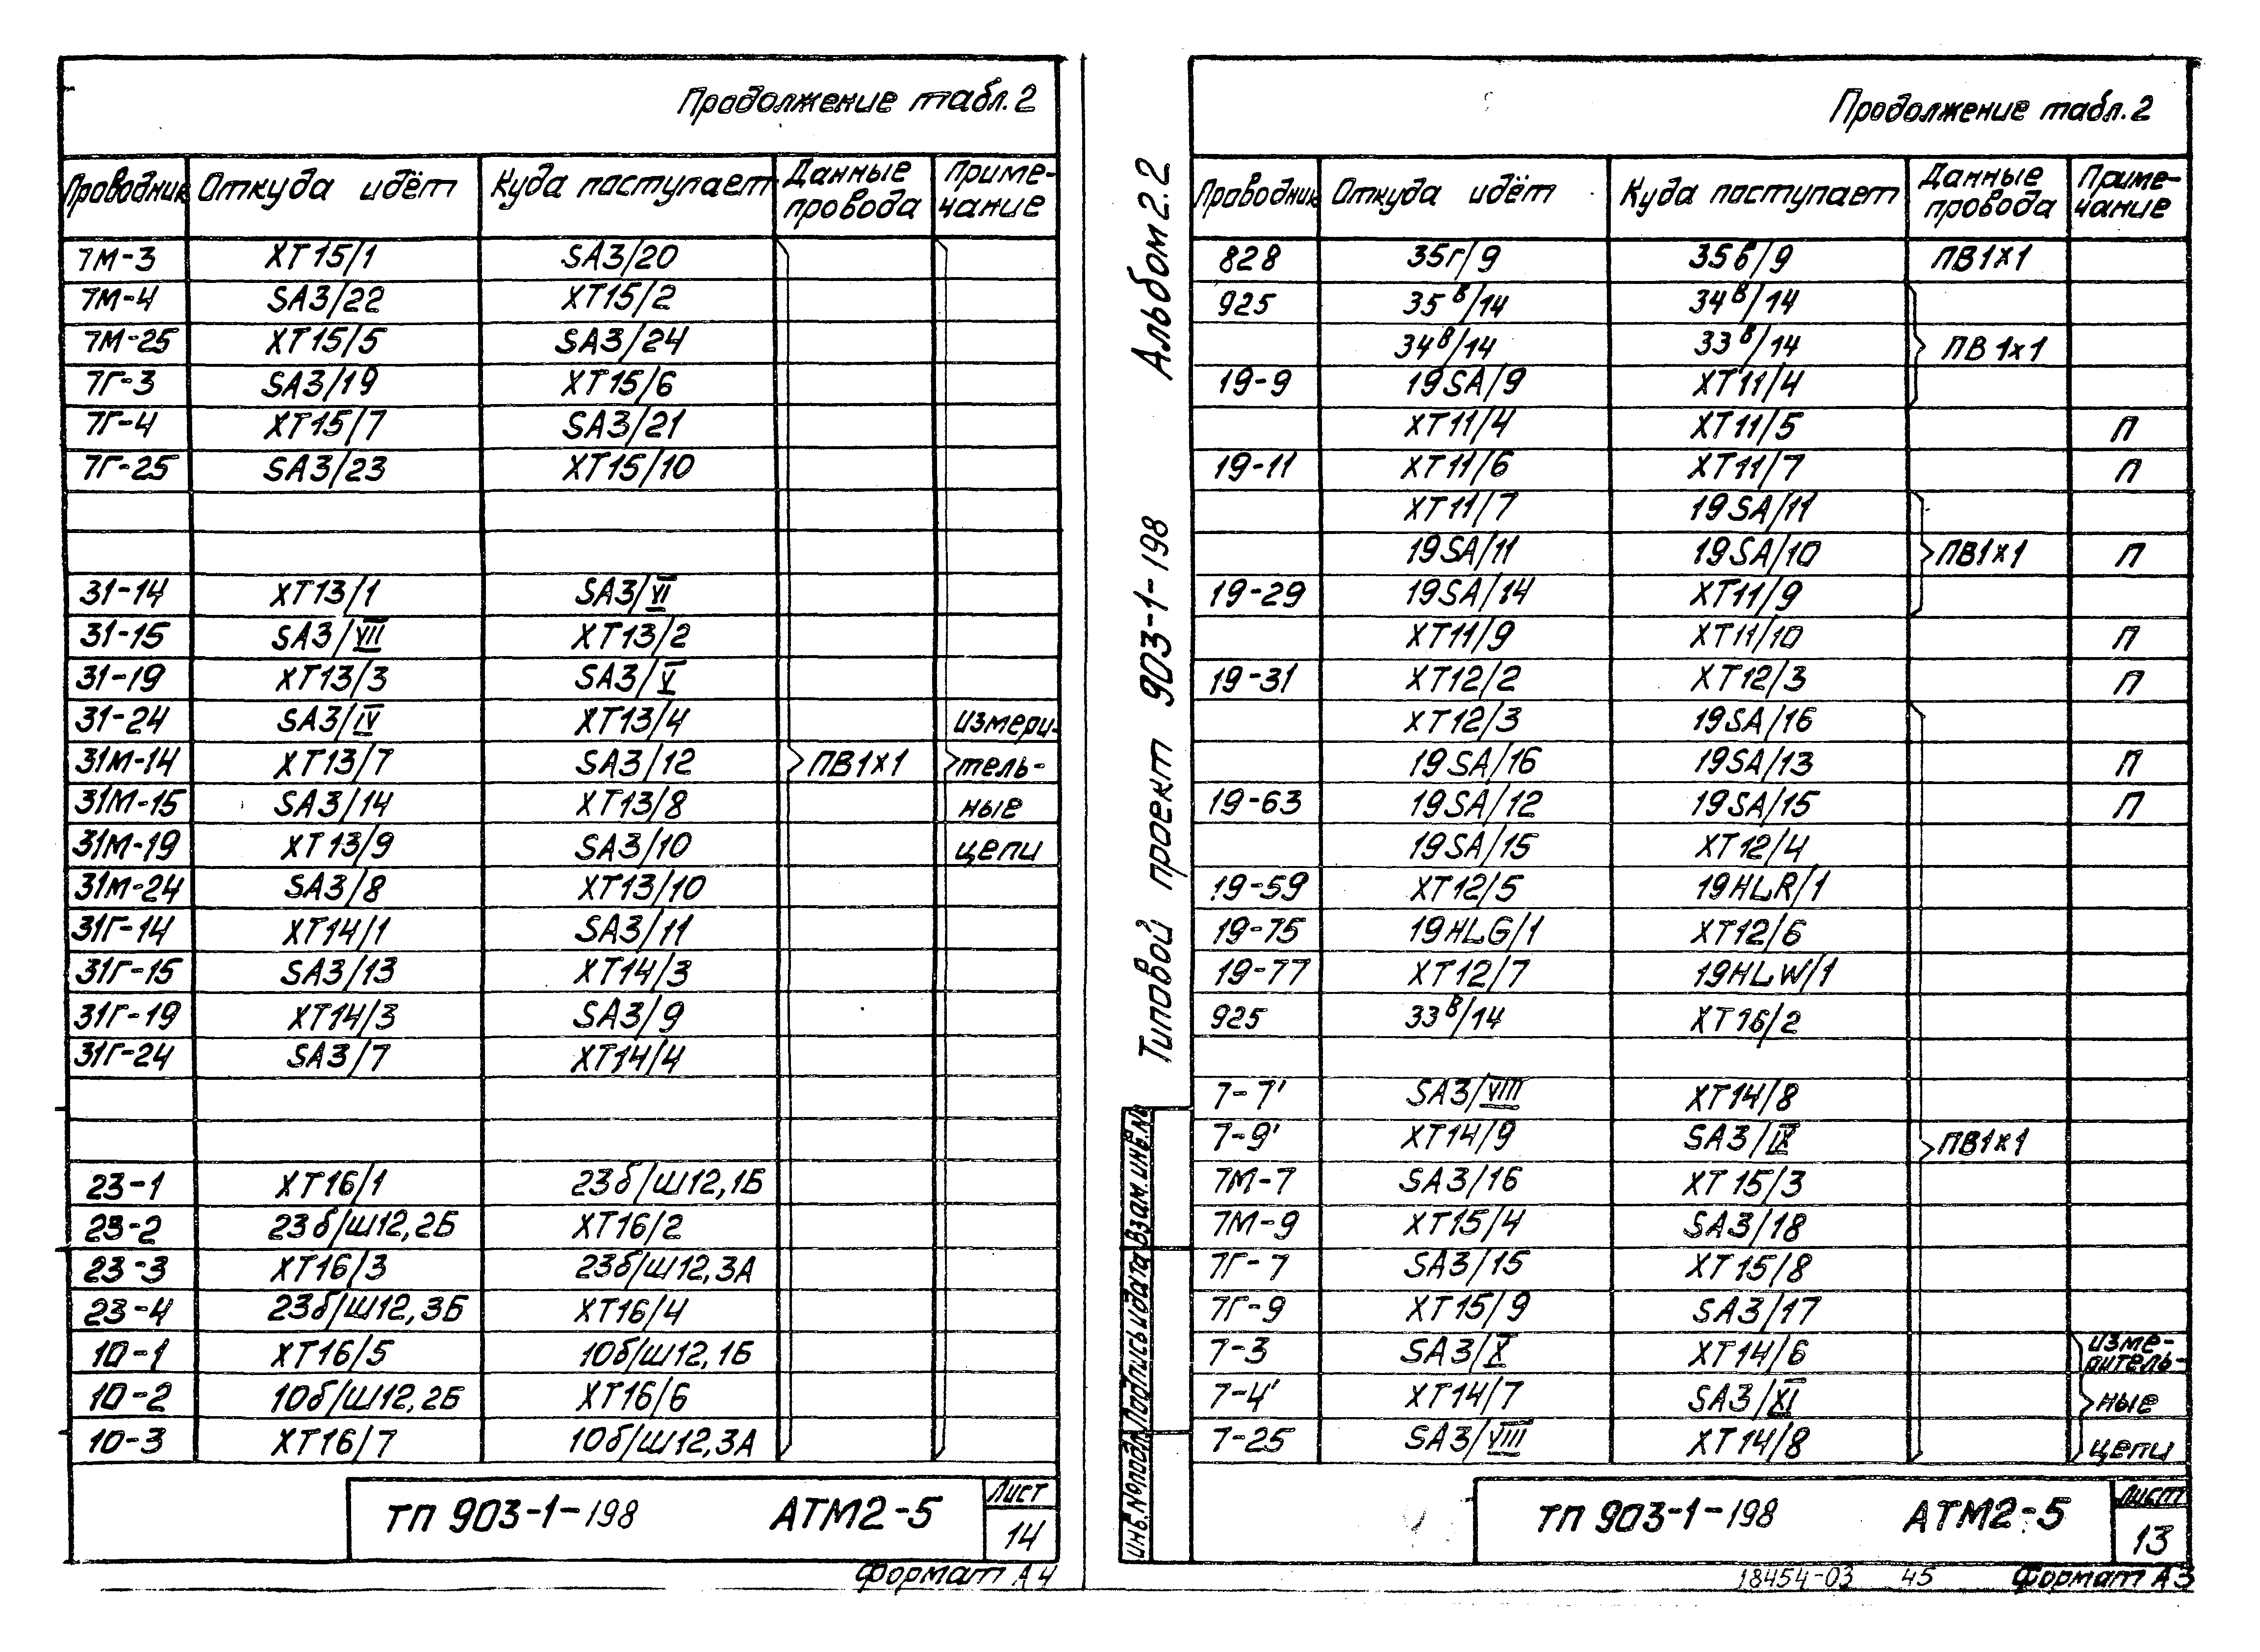 Продолжение табл. 2
Проводник Откуда идёт Куда поступает Данные провода Примечание
7М-3 XT15/1 SA3/20
7М-4 SA3/22 XT15/2
7М-25 XT15/5 SA3/24
7Г-3 SA3/19 XT15/6
7Г-4 XT15/7 SA3/21
7Г-25 SA3/23 XT15/10
31-14 XT13/1 SA3/VI
31-15 SA3/VII XT13/2
31-19 XT13/3 SA3/V
31-24 SA3/IV XT13/4 измери-
31М-14 XT13/7 SA3/12 ПВ1х1 тель-
31М-15 SA3/14 XT13/8 ные
31М-19 XT13/9 SA3/10 цепи
31М-24 SA3/8 XT13/10
31Г-14 XT14/1 SA3/11
31Г-15 SA3/13 XT14/3
31Г-19 XT14/3 SA3/9
31Г-24 SA3/7 XT14/4
23-1 XT16/1 23б/Ш12,1Б
23-2 23б/Ш12,2Б XT16/2
23-3 XT16/3 23б/Ш12,3А
23-4 23б/Ш12,3Б XT16/4
10-1 XT16/5 10б/Ш12,1Б
10-2 10б/Ш12,2Б XT16/6
10-3 XT16/7 10б/Ш12,3А
ТП 903-1-198 АТМ2-5 Лист
14
Формат А4
Альбом 2.2
Типовой проект 903-1-198
Инв.№подл. Подпись и дата Взам.инв.№
Продолжение табл. 2
Проводник Откуда идёт Куда поступает Данные провода Примечание
828 35г/9 35в/9 ПВ1х1
925 35в/14 34в/14
34в/14 33в/14 ПВ1х1
19-9 19SA/9 XT11/4
XT11/4 XT11/5 П
19-11 XT11/6 XT11/7 П
XT11/7 19SA/11
19SA/11 19SA/10 ПВ1х1 П
19-29 19SA/14 XT11/9
XT11/9 XT11/10 П
19-31 XT12/2 XT12/3 П
XT12/3 19SA/16
19SA/16 19SA/13 П
19-63 19SA/12 19SA/15 П
19SA/15 XT12/4
19-59 XT12/5 19HLR/1
19-75 19HLG/1 XT12/6
19-77 XT12/7 19HLW/1
925 33в/14 XT16/2
7-7' SA3/VIII XT14/8
7-9' XT14/9 SA3/IX ПВ1х1
7М-7 SA3/16 XT15/3
7М-9 XT15/4 SA3/18
7Г-7 SA3/15 XT15/8
7Г-9 XT15/9 SA3/17
7-3 SA3/X XT14/6 изме-
ритель-
7-4' XT14/7 SA3/XI ные
7-25 SA3/VIII XT14/8 цепи
ТП 903-1-198 АТМ2-5 Лист
13
18454-03 45 Формат А3